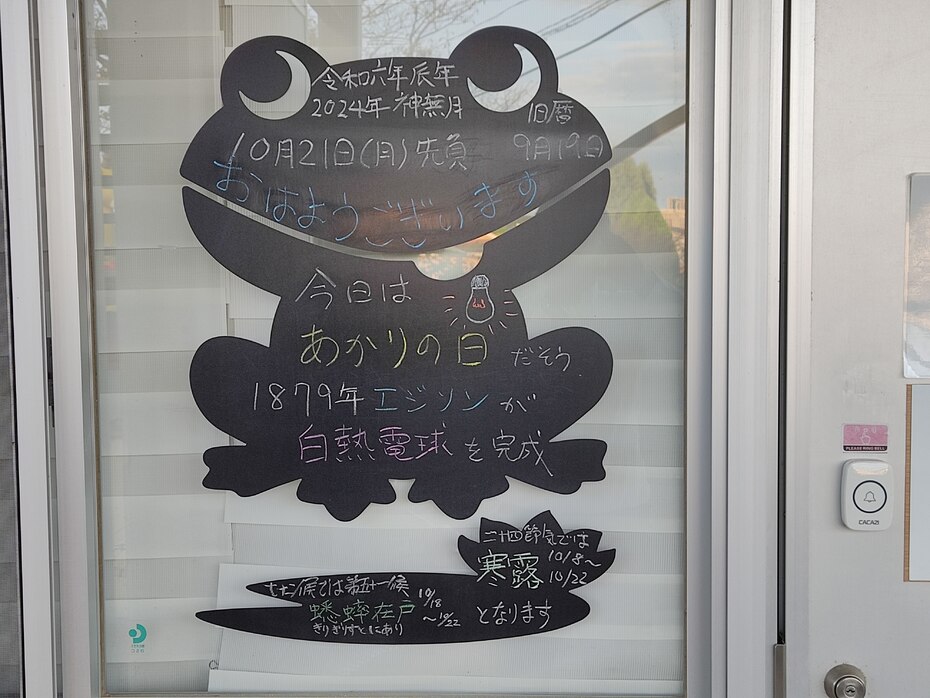 令和六年辰年
2024年 神無月
旧暦
10月21日(月)先負
9月19日
おはようございます
今日は
あかりの日 だそう
1879年エジソンが
白熱電球を完成
二十四節気では
寒露 10/8〜10/22
七十二候では第五十一候
蟋蟀在戸 10/18〜10/22 となります
きりぎりすとにあり
PLEASE RING BELL
CACAZI